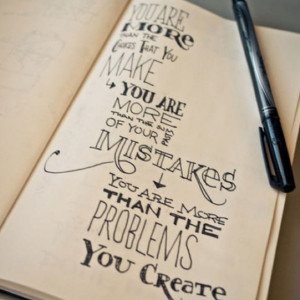 YOU ARE
MORE
THAN THE
CHOICES THAT YOU
MAKE
YOU ARE
MORE
THAN THE SUM
OF YOUR PAST
MISTAKES
YOU ARE MORE
THAN THE
PROBLEMS
YOU CREATE